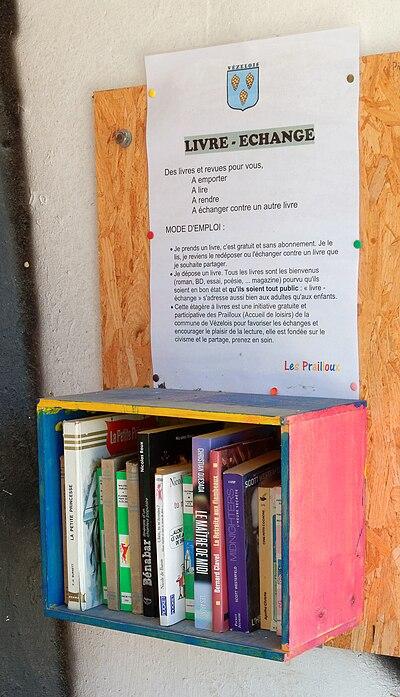 VÉZELOIS
LIVRE - ECHANGE
Des livres et revues pour vous,
A emporter
A lire
A rendre
A échanger contre un autre livre
MODE D'EMPLOI :
• Je prends un livre, c'est gratuit et sans abonnement. Je le
lis, je reviens le redéposer ou l'échanger contre un livre que
je souhaite partager.
• Je dépose un livre. Tous les livres sont les bienvenus
(roman, BD, essai, poésie, ... magazine) pourvu qu'ils
soient en bon état et qu'ils soient tout public : « livre -
échange » s'adresse aussi bien aux adultes qu'aux enfants.
• Cette étagère à livres est une initiative gratuite et
participative des Prailloux (Accueil de loisirs) de la
commune de Vézelois pour favoriser les échanges et
encourager le plaisir de la lecture, elle est fondée sur le
civisme et le partage, prenez en soin.
Les Prailloux
LA PETITE PRINCESSE
La Petite
Nicolas Roux
Bénabar
POCKET
POCKET
CHRISTIAN OLIGADA
LE MAÎTRE DE MIDI
Bernard Clavel
La Retraite aux flambeaux
MIDNIGHTERS
SCOTT WESTERFELD
SCOTT